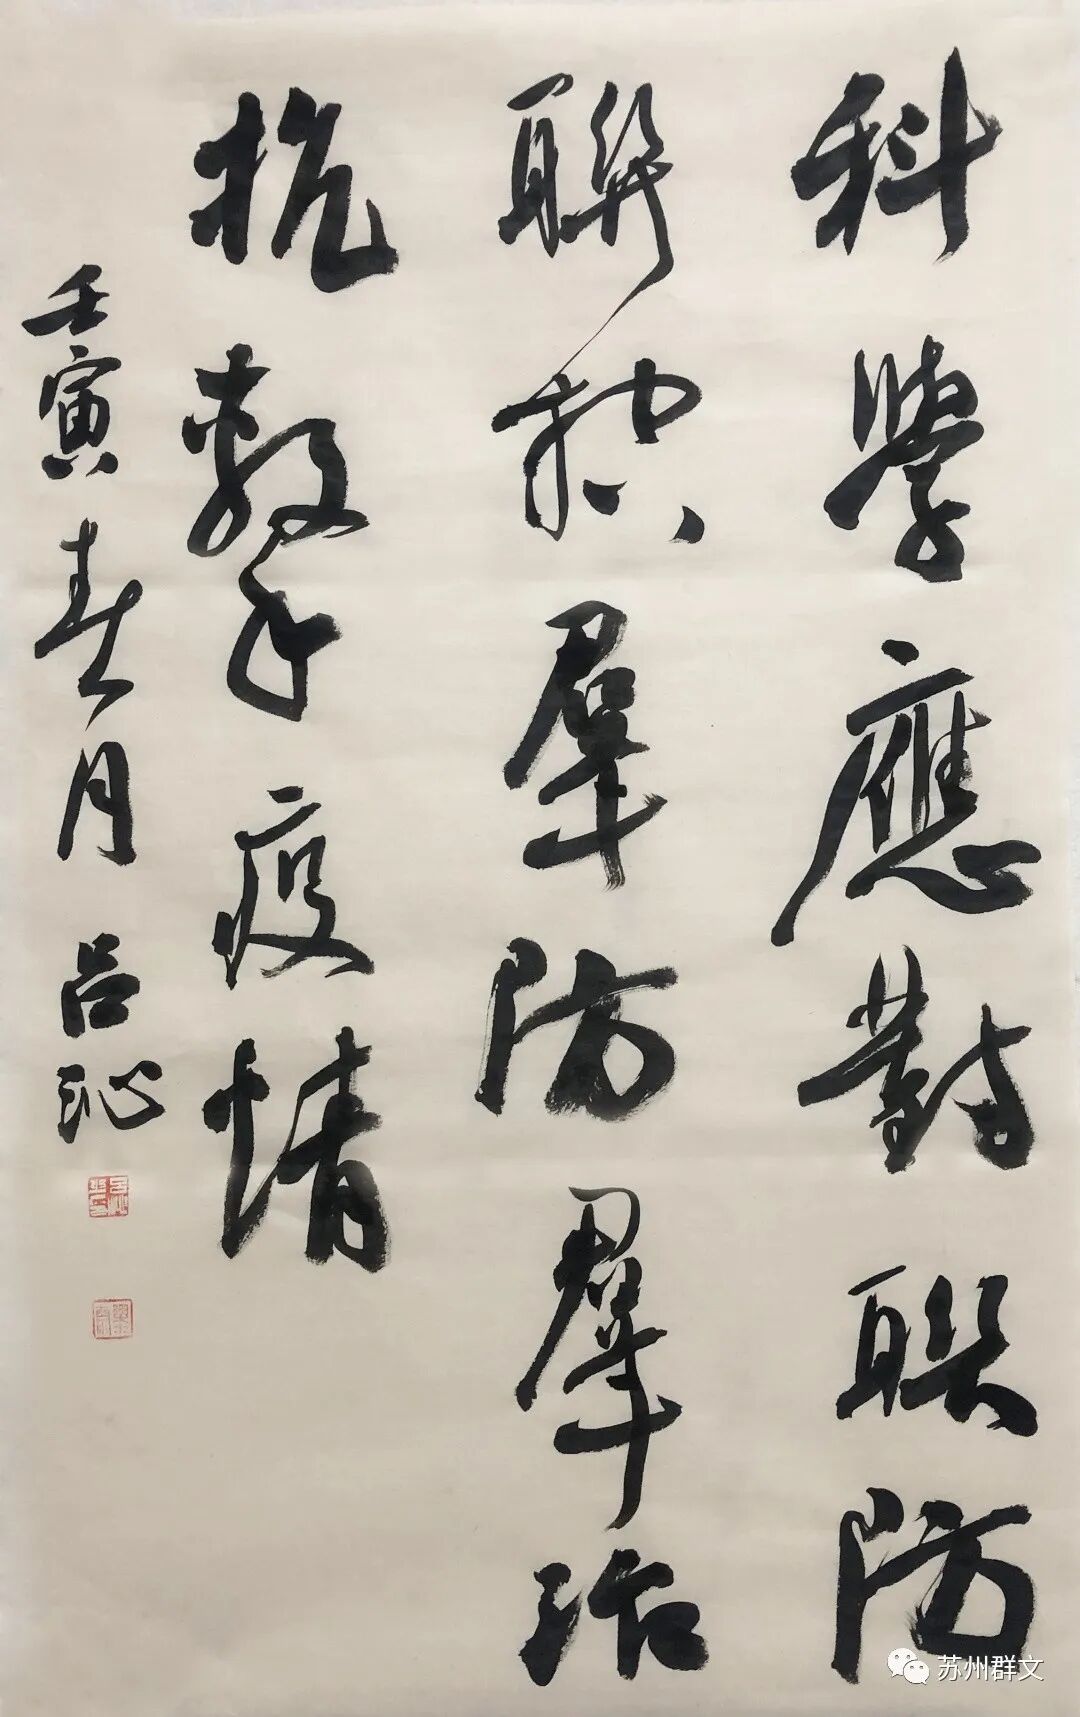 科學應對聯防
聯控羣防羣治
抗擊疫情
壬寅春月 吕沁
苏州群文